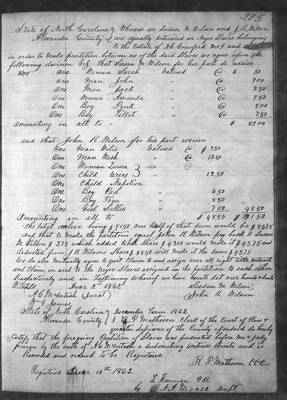 225
State of North Carolina } Whereas we Susan M. Wilson and J. R. Wilson
Alexander County } are equally interested in Negro Slaves belonging
to the Estate of
in order to make partition between us of the said Slaves we agree upon the
following division Viz that Susan M. Wilson for her part do receive
One Woman Sarah Valued @ $ 50
One Man John @ 900
One Man Jack @ 850
One Woman Amanda @ 750
One Boy @ 800
One Boy @ 750
amounting in all to $ 4300
and that John R. Wilson for his part receive
One Man Valued @ $ 250
One Man @ 1250
One Woman Laura
One Child 1250
One Child Napoleon
One Boy @ 650
One Boy Tom @ 550
One Girl Sallie 700 4850
Amounting in all to $ 4850 $ 9150
the total value being $ 9150 one half of that sum would be $ 4575
and that to make the partition equal John R. Wilson pay back to Susan
M. Wilson $ 275 which added to her share $ 4300 would make it $ 4575 and
deducted from J R Wilsons share $ 4850 will make it the same $ 4575
we do also mutually agree to quit Claim and assign over all right title interest
and Claim in and to the negro Slaves assigned in the partition to each other
respectively and in testimony whereof we have hereto set our hands & seals
2nd 1862
A. C. McIntosh Jurat Susan M. Wilson
John R. Wilson
State of North Carolina } December Term 1862
Alexander County } I R. P. Matheson Clerk of the Court of Pleas &
quarter Sessions of the County aforesaid do hereby
Certify that the foregoing Partition of Slaves was presented before me & duly
proven by the oath of A. C. McIntosh a subscribing witness thereto and is
and ordered to be Registered
R. P. Matheson CCC
Registered 10th 1862
P.R.
by